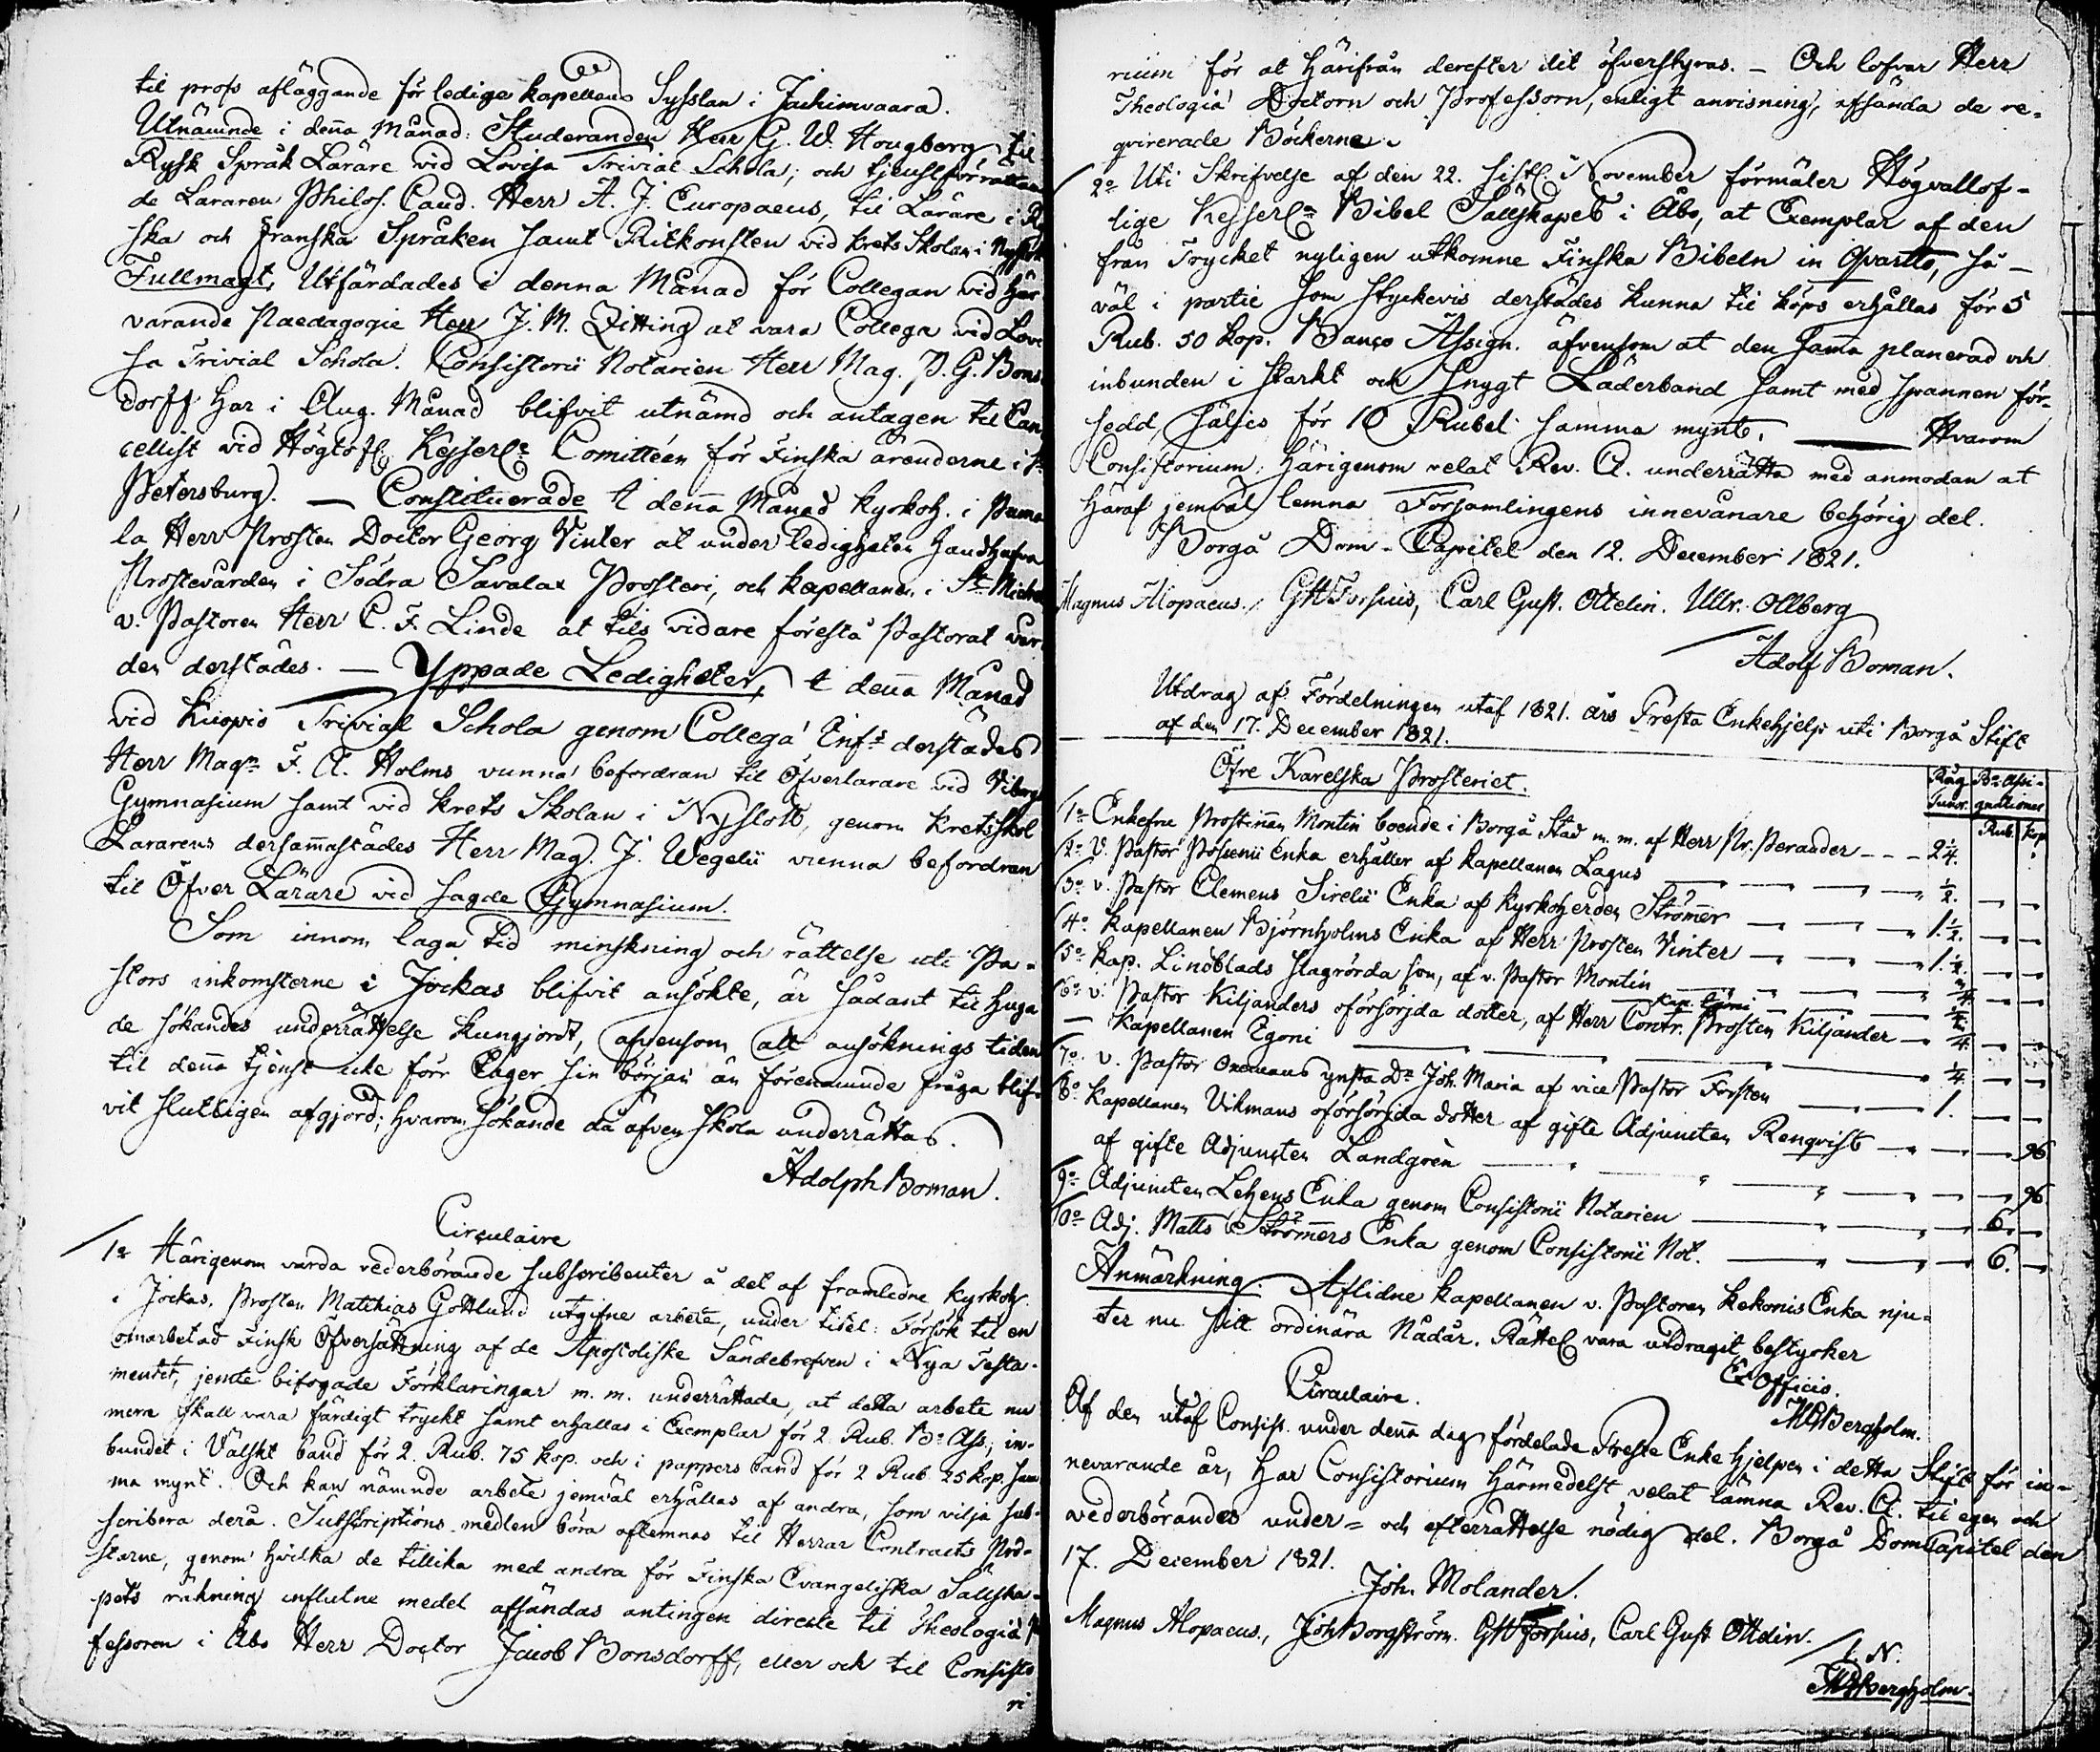 til profs afläggande för ledige kapellans Sysslan i Jächimvaara.
Utnämnde i deña Månad: Studeranden Herr G. W. Hougberg til
Rysk Språk Lärare vid Lovisa Trivial Schola; och tjenstförrättan
de Läraren Philos. Cand. Herr A. J. Europaeus, til Lärare i Ry
ska och Franska Språken samt Ritkonsten vid krets Skolan i Nyslott
Fullmagt, Utfärdades i denna Månad för Collegan vid här
varande Paedagogie Herr J. M. Zitting at vara Collega vid Lovi
sa Trivial Schola. Consistorii Notarien Herr Mag. P. G. Bons
dorff har i Aug. Månad blifvit utnämd och antagen til Can
cellist vid Högtöfl. Kejserl:a Comitteén för Finska ärenderne i S:t
Petersburg. — Constituerade i deña Månad kyrkoh. i Puma
la Herr Prosten Doctor Georg Vinter at under ledigheten handhafva
Prostevården i Södra Savalax Prosteri, och kapellanen i S:t Miche
v. Pastoren Herr C. F. Linde at tils vidare förestå Pastorat vår
den derstädes. — Yppade Ledigheter, i deña Månad
vid Kuopio Trivial Schola genom Collegá Inf:s derstädes
Herr Mag:n F. A. Holms vunna befordran til Öfverlärare vid Viborgs
Gymnasium samt vid krets Skolan i Nyslott, genom Kretsskol
Lärarens dersam̄astädes Herr Mag. J. Wegelii vunna befordran
til Öfver Lärare vid sagde Gymnasium.
Som innom laga tid minskning och rättelse uti Pa-
stors inkomsterne i Jockas blifvit ansökte, är sådant til huga
de sökandes underrättelse kungjordt, äfvensom att ansöknings tiden
til deña tjenst icke förr tager sin början än förenämnde fråga blif-
vit slutligen afgjord; hvarom sökande då äfven skola underrättas.
Adolph Boman.
Circulaire
1:o Härigenom varda vederbörande subscribenter å det af framledne kyrkoh.
i Jockas, Prosten Matthias Gottlund utgifne arbete, under titel: Försök til en
omarbetad Finsk Öfversättning af de Apostoliske Sändebrefven i Nya Testa-
mentet, jemte bifogade Förklaringar m. m. underrättade, at detta arbete nu
mera skall vara färdigt tryckt samt erhållas i Exemplar för 2 Rub. B:o Ass., in-
bundet i Välskt band för 2. Rub. 75 kop. och i pappers band för 2 Rub. 25 kop. sam
ma mynt. Och kan nämnde arbete jemväl erhållas af andra, som vilja sub-
scribera derå. Subscriptions medlen böra aflemnas til Herrar Contracts Pro-
starne, genom hvilka de tillika med andra för Finska Evangeliska Sällska-
pets räkning influtne medel afsändas antingen directe til Theologiæ P
fessoren i Åbo Herr Doctor Jacob Bonsdorff, eller och til Consisto
ri
rium för at härifrån derefter dit öfverstyras. — Och lofvar Herr
Theologiæ Doctorn och Professorn, enligt anvisning, afsända de re-
qvirerade Böckerne.
2:o Uti Skrifvelse af den 22. sistl. November förmäler Högvällof-
lige Kejserl:a Bibel Sällskapet i Åbo, at Exemplar af den
från Trycket nyligen utkomne Finska Bibeln in Qvartto, så-
väl i partie som styckevis derstädes kunna til köps erhållas för 5
Rub. 50 kop. Banco Assign. äfvensom at den sam̄a planerad och
inbunden i starkt och snygt Läderband samt med spännen för-
sedd, säljes för 10 Rubel samma mynt. — Hvarom
Consistorium härigenom velat Rev. Cl. underrätta med anmodan at
häraf jemväl lemna Församlingens innevånare behörig del.
Borgå Dom-Capitel den 12. December 1821.
Magnus Alopaeus, GHForsius, Carl Gust. Ottelin. Ullr. Ollberg
Adolf Boman.
Utdrag af Fördelningen utaf 1821. års Tresta Enkehjelp uti Borgå Stift
af den 17. December 1821.
Öfre Karelska Prosteriet.
Råg B:o Assi-
Tunor. gnationer
Rub. kop
1:o Enkefru Prostiñan Montin boende i Borgå Stad m. m. af Herr Pr. Perander - - - 2¼.
2:o V. Pastor Posenii Enka erhåller af kapellanen Lagus — ½.
3:o v. Pastor Clemens Sirelii Enka af Kyrkoherden Ström̄er — 1.½.
4:o Kapellanen Björnholms Enka af Herr Prosten Vinter — 1.½.
5:o Kap. Lindblads slagrörda son, af v. Pastor Montin — ¼
6:o v. Pastor Kiljanders oförsörjda dotter, af Herr Contr. Prosten Kiljander — ¼
— Kapellanen Egoni — ¼
7:o v. Pastor Oxmans yngsta D:r Joh. Maria af vice Pastor Forsten — 1.
8:o Kapellanen Vikmans oförsörjda dotter af gifte Adjuncten Renqvist — 96
af gifte Adjuncten Landgrén — 96
9:o Adjuncten Lehens Enka genom Consistorii Notarien — 6.
10:o Adj. Matts Ström̄ers Enka genom Consistorii Not. — 6.
Anmärkning. Aflidne kapellanen v. Pastoren Kekonis Enka nju-
ter nu sitt ordinära Nådår. Rättel. vara utdragit bestyrker
Ex Officio.
Bergholm.
Circulaire.
Af den utaf Consist. under deña dag fördelade Treste Enke hjelpen i detta Stift för in-
nevarande år, har Consistorium härmedelst velat lämna Rev. Cl. til egen och
vederbörandes under- och efterrättelse nödig del. Borgå DomCapitel den
17. December 1821.
Joh. Molander.
Magnus Alopaeus, Joh Borgström. GHForsius, Carl Gust Ottelin.
I. N.
Bergholm.